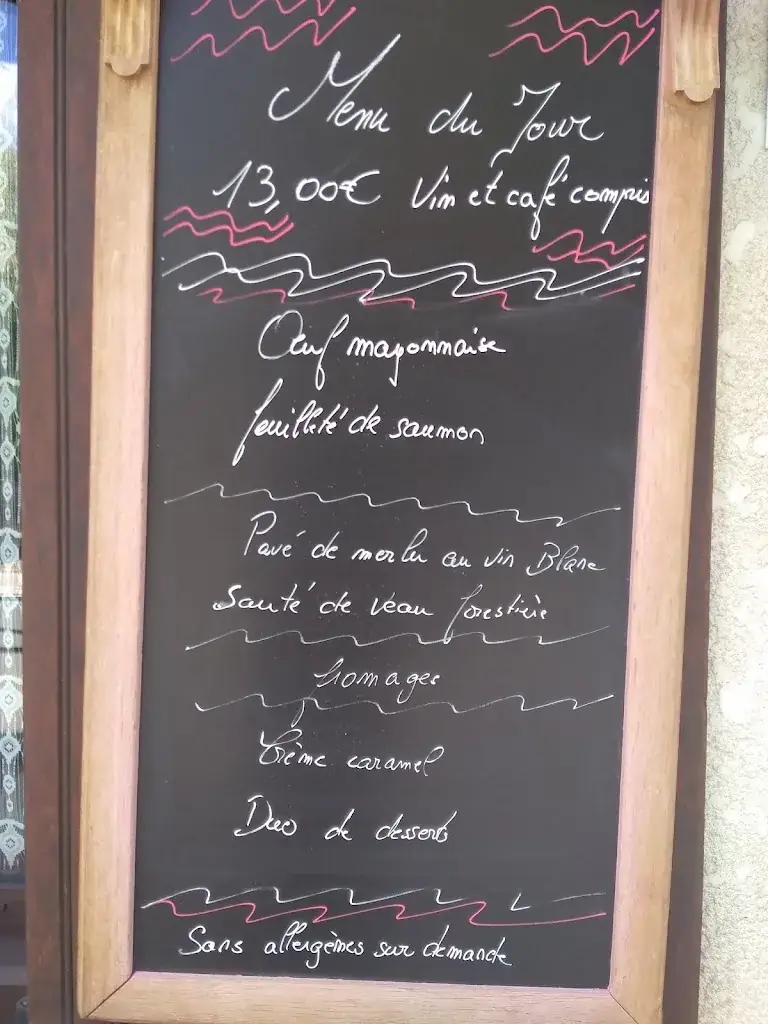 Menu du Jour
13,00€ Vin et café compris
Oeuf mayonnaise
feuilleté de saumon
Pavé de merlu au vin Blanc
Sauté de veau forestière
fromages
Crème caramel
Duo de desserts
Sans allergèmes sur demande